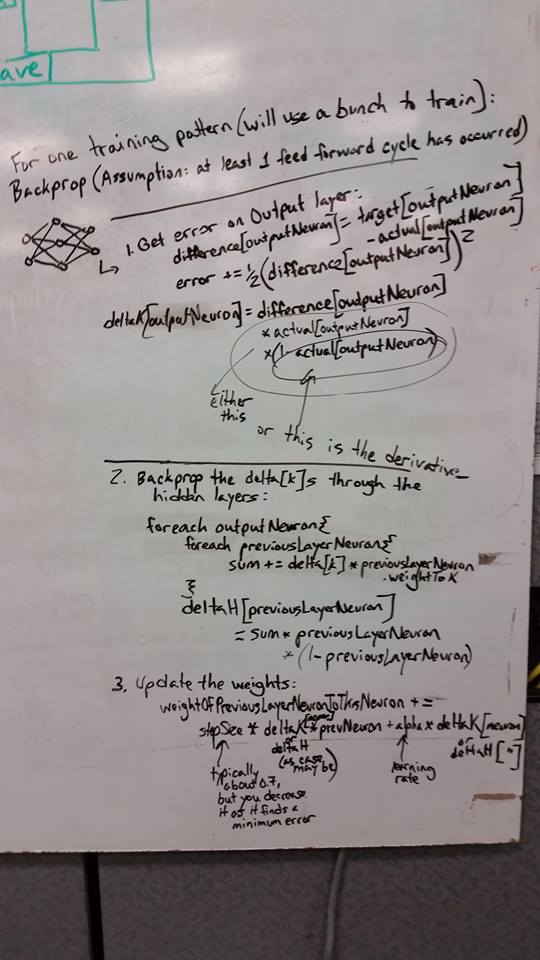 ave
For one training pattern (will use a bunch to train):
Backprop (Assumption: at least 1 feed forward cycle has occurred)
1. Get error on Output layer:
difference[outputNeuron] = target[outputNeuron]
- actual[outputNeuron]
error += 1/2(difference[outputNeuron])^2
deltaK[outputNeuron] = difference[outputNeuron]
* actual[outputNeuron]
* (1-actual[outputNeuron])
either
this
or this is the derivative
2. Backprop the delta[k]s through the
hidden layers:
foreach outputNeuron{
foreach previousLayerNeuron{
sum += delta[k] * previousLayerNeuron
.weightToK
}
deltaH[previousLayerNeuron]
= sum * previousLayerNeuron
* (1-previousLayerNeuron)
3. Update the weights:
weightOfPreviousLayerNeuronToThisNeuron +=
stepSize * deltaK * prevNeuron + alpha * deltaK[neuron]
or
deltaH
(as case
may be)
or
deltaH[n]
learning
rate
typically
about 0.7,
but you decrease
it as it finds a
minimum error